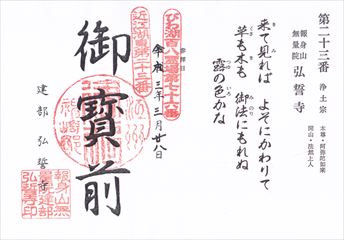 第二十三番 浄土宗
報身山
無量院 弘誓寺
本尊・阿弥陀如来
開山・法然上人
来て見れば よそにかわりて
草も木も 御法にもれぬ
露の色かな
つゆ
びわ湖百八霊場第七十六番
近江湖 第二十三番
参拝日
令和三年三月廿八日
御寳前
建部 弘誓寺
報身山無
量院建部
弘誓寺印